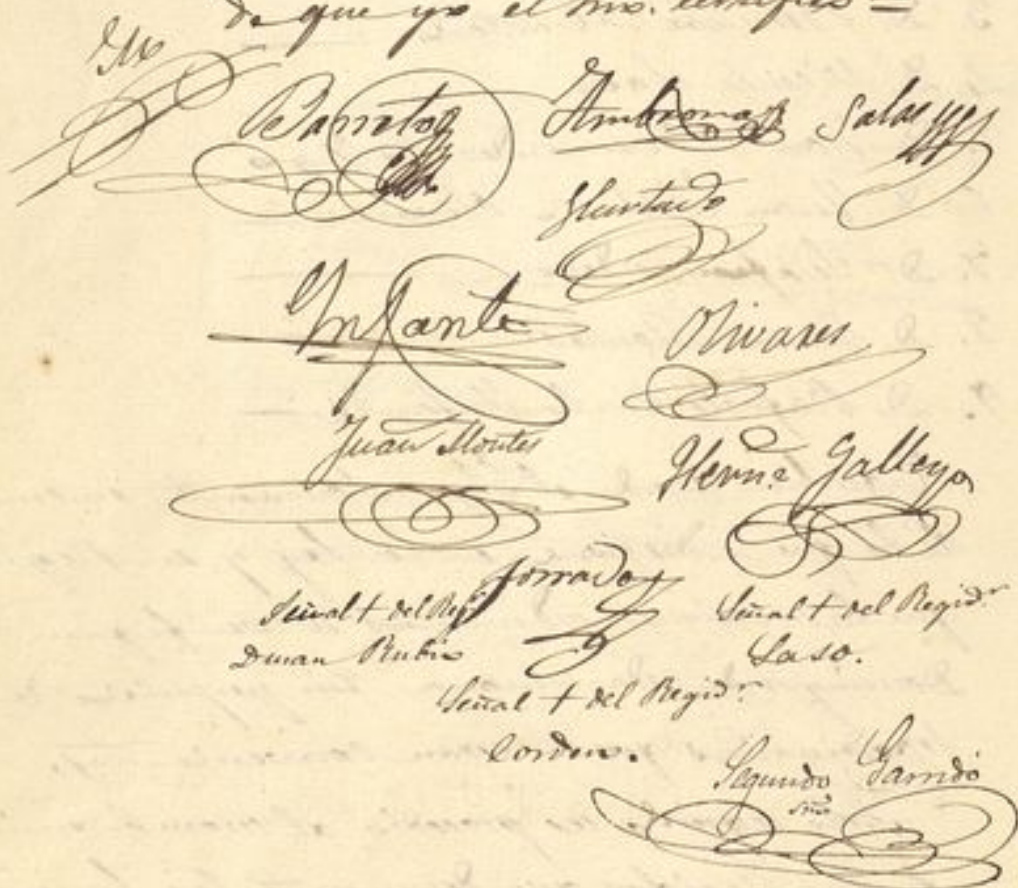 de que yo el Srio. certifico =
Barreto Ambrona Salas
Hurtado
Infante Olivares
Juan Montes Hern.z Gallego
Forrado
Señal + del Reg.r Señal + del Regid.r
Duran Rubio Laso.
Señal + del Regid.r
Cordero.
Segundo Garrido
Srio